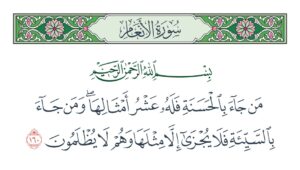 سُورَةُ الأَنْعَامِ
بِسْمِ اللَّهِ الرَّحْمَٰنِ الرَّحِيمِ
مَن جَآءَ بِالْحَسَنَةِ فَلَهُۥ عَشْرُ أَمْثَالِهَا ۖ وَمَن جَآءَ
بِالسَّيِّئَةِ فَلَا يُجْزَىٰٓ إِلَّا مِثْلَهَا وَهُمْ لَا يُظْلَمُونَ ١٦٠